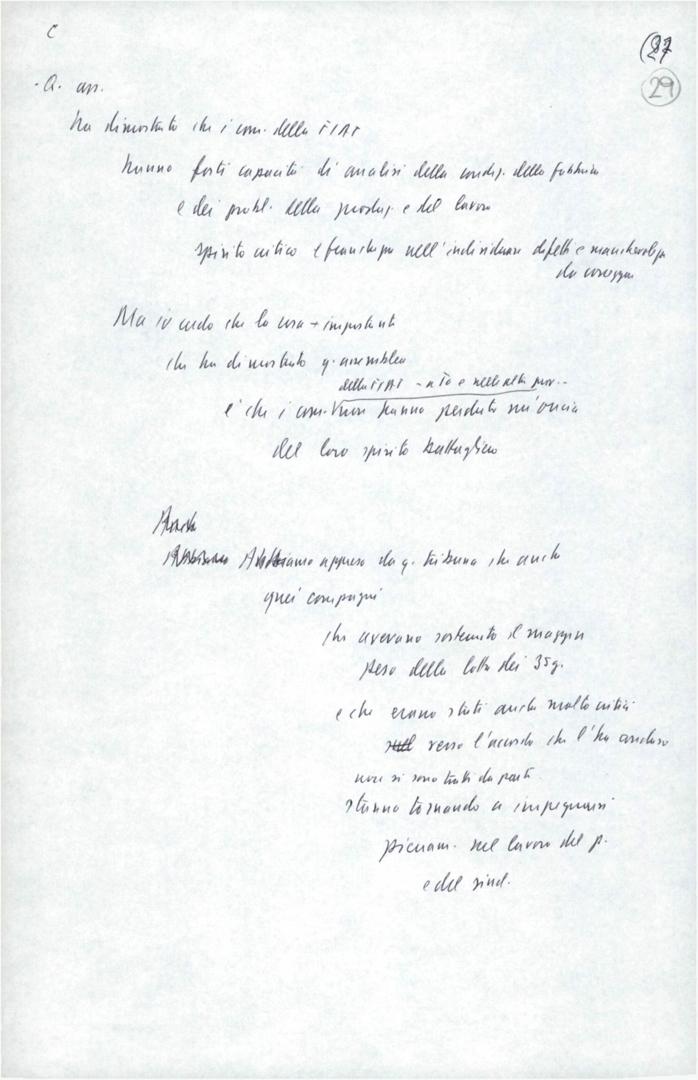 C
(27
29
- Q. ass.
ha dimostrato che i com. della FIAT
hanno forti capacità di analisi della condiz. della fabbrica
e dei probl. della produz. e del lavoro
spirito critico e franchezza nell'individuare difetti e manchevolezze
da correggere
Ma io credo che la cosa + importante
che ha dimostrato q. assemblea
della FIAT - a To e nelle altre prov. -
è che i com. non hanno perduto un'oncia
del loro spirito battagliero
Anche
Abbiamo appreso da q. tribuna che anche
quei compagni
che avevano sostenuto il maggior
peso della lotta dei 35 g.
e che erano stati anche molto critici
verso l'accordo che l'ha conclusa
non si sono tratti da parte
stanno tornando a impegnarsi
pienam. nel lavoro del p.
e del sind.